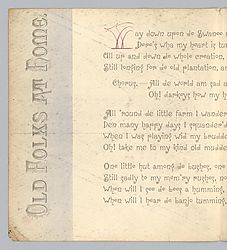 OLD FOLKS AT HOME.
Way down upon de Swanee
Dere's wha my heart is tur
All up and down de whole creation,
Still longing for de old plantation, an
Chorus. — All de world am sad a
Oh! darkeys how my h
All 'round de little farm I wander
Den many happy days I squander'd
When I was playing wid my brudde
Oh! take me to my kind old mudde
One little hut among de bushes, one
Still sadly to my mem'ry rushes, no
When will I see de bees a humming,
When will I hear de banjo tumming,